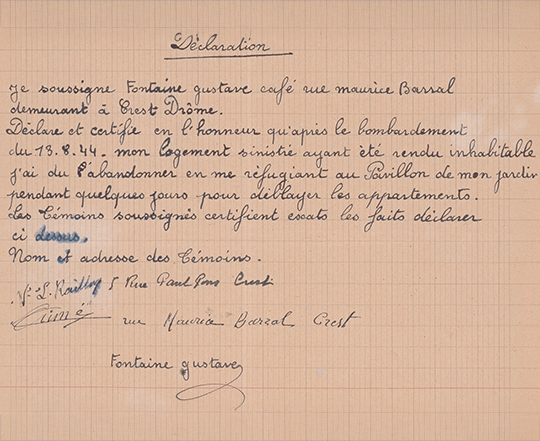 Déclaration
Je soussigne Fontaine gustave café rue maurice Barral
demeurant à Crest Drôme.
Déclare et certifie en l'honneur qu'après le bombardement
du 13.8.44. mon logement sinistré ayant été rendu inhabitable
j'ai du l'abandonner en me réfugiant au Pavillon de mon jardin
pendant quelques jours pour déblayer les appartements.
Les Témoins soussignés certifient exats les faits déclarer
ci dessus.
Nom et adresse des Témoins.
5 Rue Paul Pons Crest
rue Maurice Barral Crest
Fontaine gustave